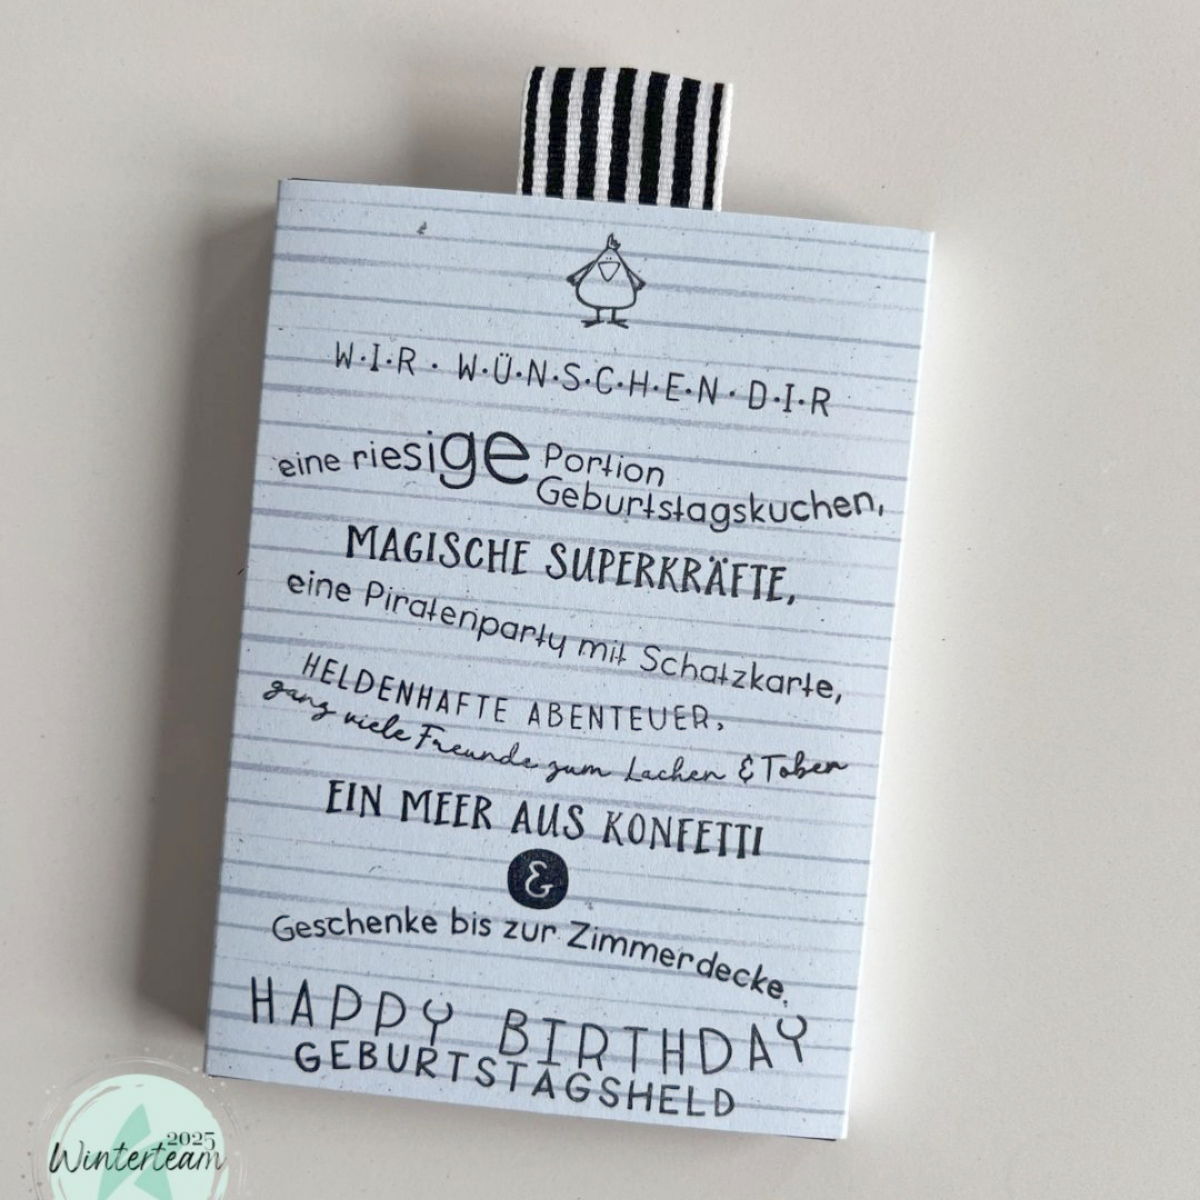 W·I·R · W·Ü·N·S·C·H·E·N · D·I·R
eine riesige Portion
Geburtstagskuchen,
MAGISCHE SUPERKRÄFTE,
eine Piratenparty mit Schatzkarte,
HELDENHAFTE ABENTEUER,
ganz viele Freunde zum Lachen & Toben
EIN MEER AUS KONFETTI
&
Geschenke bis zur Zimmerdecke.
HAPPY BIRTHDAY
GEBURTSTAGSHELD
2025
Winterteam